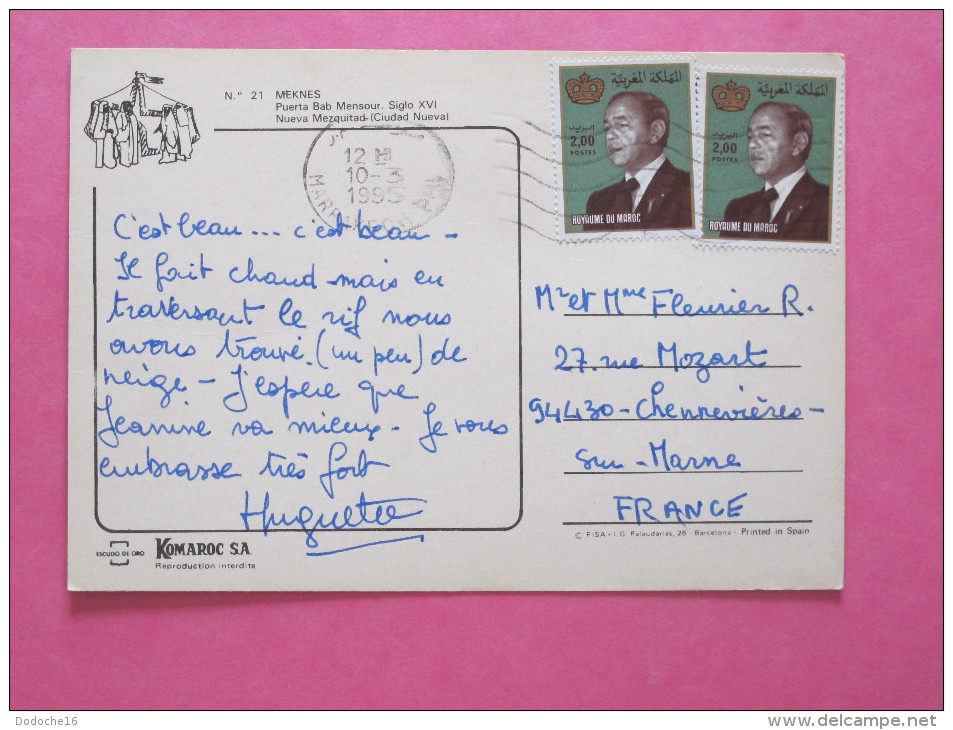 N.º 21 MEKNES
Puerta Bab Mensour. Siglo XVI
Nueva Mezquitad-(Ciudad Nueva)
12 H
10-3
1995
المملكة المغربية
البريد
2,00
POSTES
ROYAUME DU MAROC
المملكة المغربية
البريد
2,00
POSTES
ROYAUME DU MAROC
C'est beau... c'est beau -
Il fait chaud mais en
traversant le rif nous
avons trouvé (un peu) de
neige - J'espère que
Jeanine va mieux - Je vous
embrasse très fort
Huguette
Mr et Mme Fleurier R.
27. rue Mozart
94430 - Chennevières -
sur - Marne
FRANCE
ESCUDO DE ORO
KOMAROC S.A.
Reproduction interdite
© FISA - I.G. Palaudarias, 26 - Barcelona - Printed in Spain
Dodoche16
www.delcampe.net